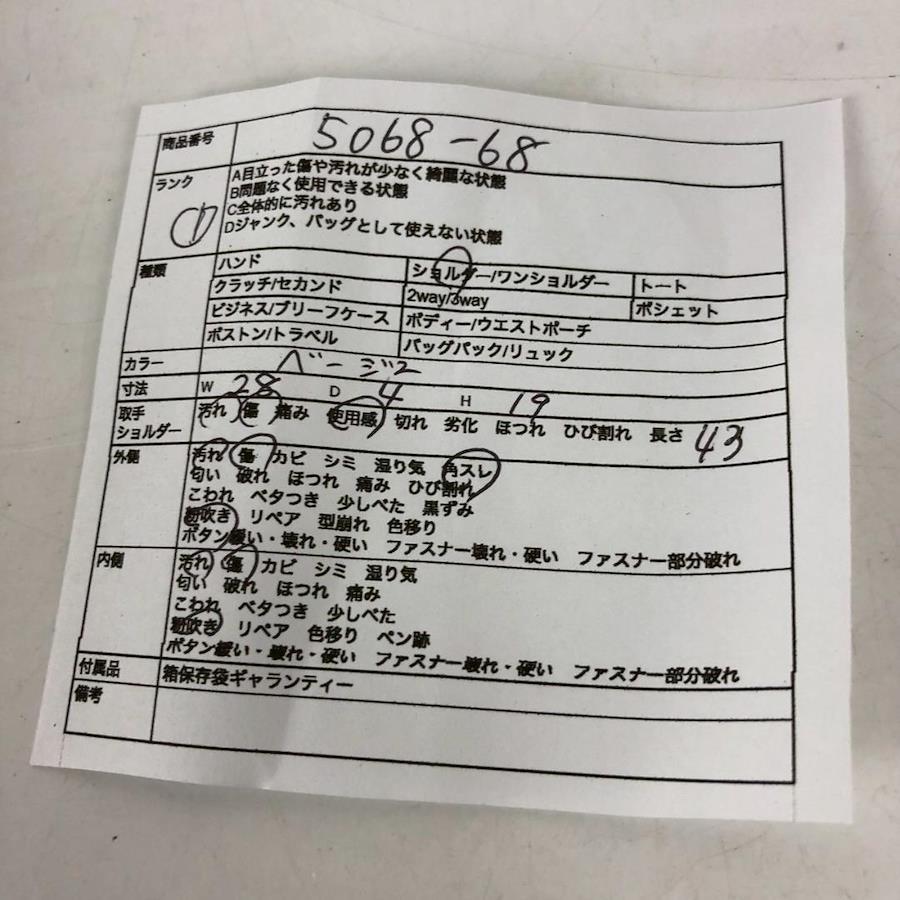 商品番号 5068-68
ランク D A目立った傷や汚れが少なく綺麗な状態
B問題なく使用できる状態
C全体的に汚れあり
Dジャンク、バッグとして使えない状態
種類 ハンド ショルダー/ワンショルダー トート
クラッチ/セカンド 2way/3way ポシェット
ビジネス/ブリーフケース ボディー/ウエストポーチ
ボストン/トラベル バッグパック/リュック
カラー ベージュ
寸法 W 28 D 4 H 19
取手 汚れ 傷 痛み 使用感 切れ 劣化 ほつれ ひび割れ 長さ 43
ショルダー
外側 汚れ 傷 カビ シミ 湿り気 角スレ
匂い 破れ ほつれ 痛み ひび割れ
こわれ ベタつき 少しべた 黒ずみ
粉吹き リペア 型崩れ 色移り
ボタン緩い・壊れ・硬い ファスナー壊れ・硬い ファスナー部分破れ
内側 汚れ 傷 カビ シミ 湿り気
匂い 破れ ほつれ 痛み
こわれ ベタつき 少しべた
粉吹き リペア 色移り ペン跡
ボタン緩い・壊れ・硬い ファスナー壊れ・硬い ファスナー部分破れ
付属品 箱保存袋ギャランティー
備考